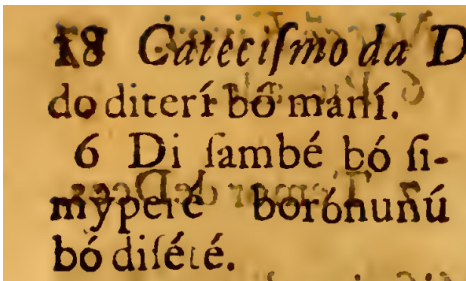 18 Cateciſmo da D
do diterí bó mání.
6 Di ſambé bó ſi-
mỹpeté borónunú
bó diſété.